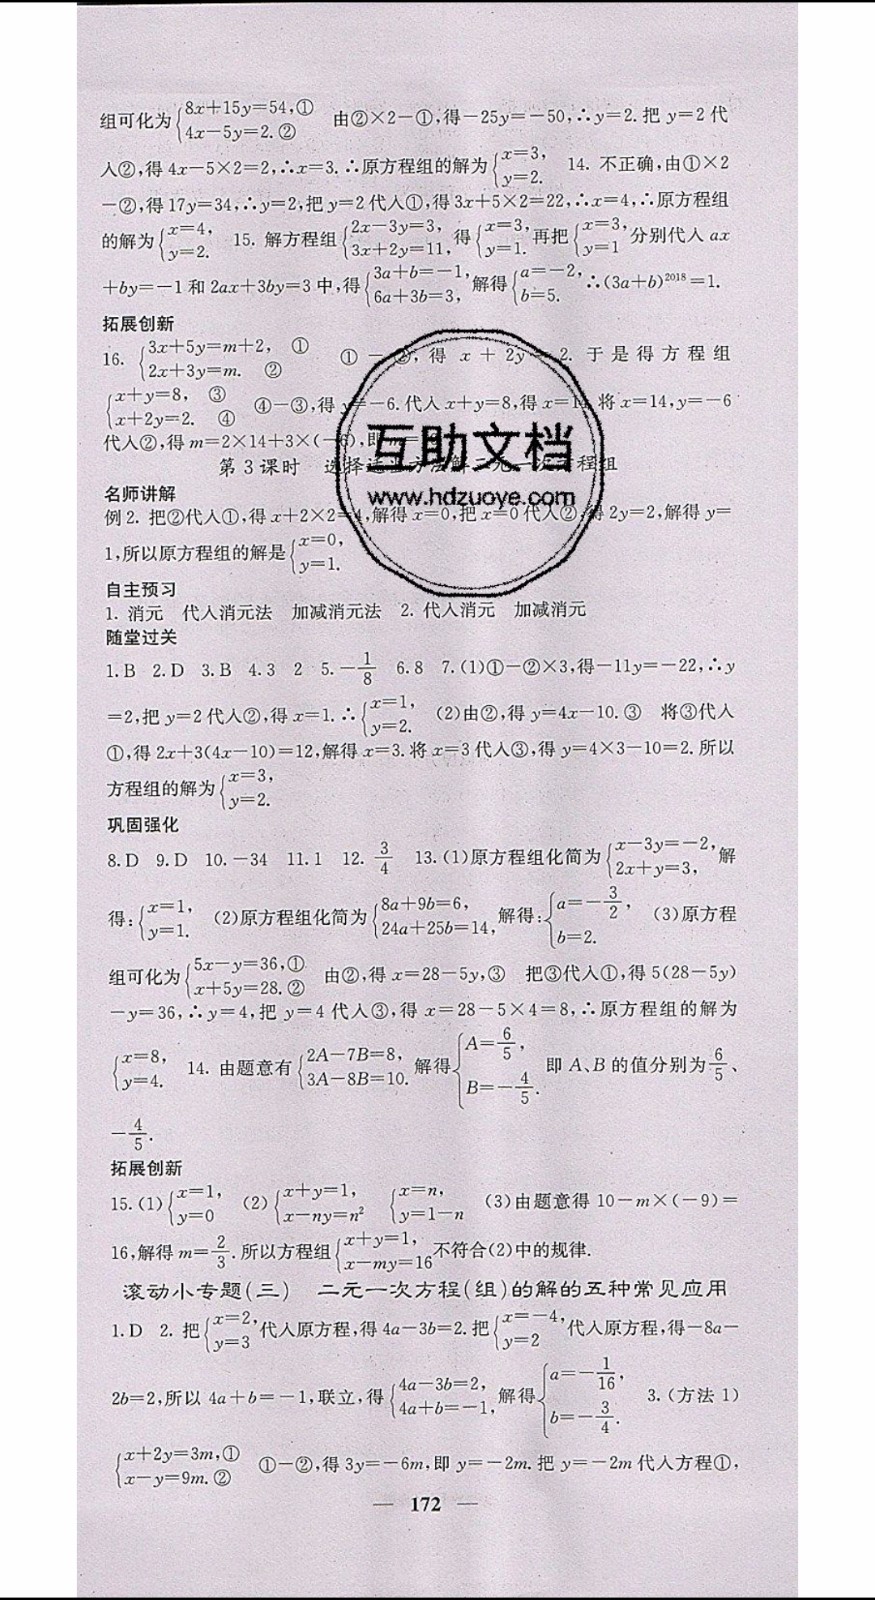 组可化为{8x+15y=54,① 4x-5y=2.② 由②×2-①,得-25y=-50,∴y=2.把 y=2代
入②,得 4x-5×2=2,∴x=3.∴原方程组的解为{x=3, y=2. 14. 不正确,由①×2
-②,得 17y=34,∴y=2,把 y=2代入①,得 3x+5×2=22,∴x=4,∴原方程组
的解为{x=4, y=2. 15. 解方程组{2x-3y=3, 3x+2y=11, 得{x=3, y=1. 再把{x=3, y=1 分别代入 ax
+by=-1 和 2ax+3by=3 中,得{3a+b=-1, 6a+3b=3, 解得{a=-2, b=5. ∴(3a+b)²⁰¹⁸=1.
拓展创新
16. {3x+5y=m+2, ① 2x+3y=m. ② ①-②,得 x+2y=2. 于是得方程组
{x+y=8, ③ x+2y=2. ④ ④-③,得 y=-6.代入 x+y=8,得 x=14.将 x=14,y=-6
代入②,得 m=2×14+3×(-6),即
互助文档
第 3 课时 选择适当方法解二元一次方程组
www.hdzuoye.com
名师讲解
例 2. 把②代入①,得 x+2×2=4,解得 x=0,把 x=0代入②,得 2y=2,解得 y=
1,所以原方程组的解是{x=0, y=1.
自主预习
1. 消元 代入消元法 加减消元法 2. 代入消元 加减消元
随堂过关
1.B 2.D 3.B 4.3 2 5.-1/8 6.8 7.(1)①-②×3,得-11y=-22,∴y
=2,把 y=2代入②,得 x=1.∴{x=1, y=2. (2)由②,得 y=4x-10.③ 将③代入
①,得 2x+3(4x-10)=12,解得 x=3.将 x=3代入③,得 y=4×3-10=2.所以
方程组的解为{x=3, y=2.
巩固强化
8.D 9.D 10.-34 11.1 12. 3/4 13.(1)原方程组化简为{x-3y=-2, 2x+y=3, 解
得:{x=1, y=1. (2)原方程组化简为{8a+9b=6, 24a+25b=14, 解得:{a=-3/2, b=2. (3)原方程
组可化为{5x-y=36,① x+5y=28.② 由②,得 x=28-5y,③ 把③代入①,得 5(28-5y)
-y=36,∴y=4,把 y=4代入③,得 x=28-5×4=8,∴原方程组的解为
{x=8, y=4. 14. 由题意有{2A-7B=8, 3A-8B=10. 解得{A=6/5, B=-4/5. 即 A、B 的值分别为6/5、
-4/5.
拓展创新
15.(1){x=1, y=0 (2){x+y=1, x-ny=n² {x=n, y=1-n (3)由题意得 10-m×(-9)=
16,解得 m=2/3.所以方程组{x+y=1, x-my=16 不符合(2)中的规律.
滚动小专题(三) 二元一次方程(组)的解的五种常见应用
1.D 2. 把{x=2, y=3 代入原方程,得 4a-3b=2.把{x=-4, y=2 代入原方程,得-8a-
2b=2,所以 4a+b=-1,联立,得{4a-3b=2, 4a+b=-1, 解得{a=-1/16, b=-3/4. 3.(方法 1)
{x+2y=3m,① x-y=9m.② ①-②,得 3y=-6m,即 y=-2m.把 y=-2m代入方程①,
— 172 —